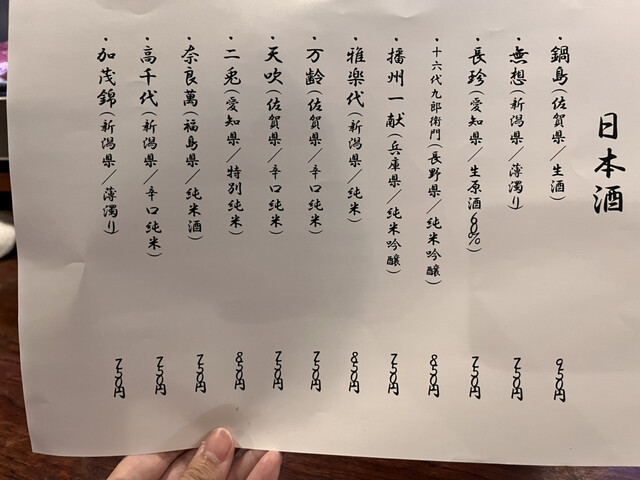 日本酒
・鍋島(佐賀県/生酒) 950円
・無想(新潟県/薄濁り) 750円
・長珍(愛知県/生原酒60%) 750円
・十六代九郎衛門(長野県/純米吟醸) 850円
・播州一献(兵庫県/純米吟醸) 750円
・雅楽代(新潟県/純米) 850円
・万齢(佐賀県/辛口純米) 750円
・天吹(佐賀県/辛口純米) 750円
・二兎(愛知県/特別純米) 850円
・奈良萬(福島県/純米酒) 750円
・高千代(新潟県/辛口純米) 750円
・加茂錦(新潟県/薄濁り) 750円